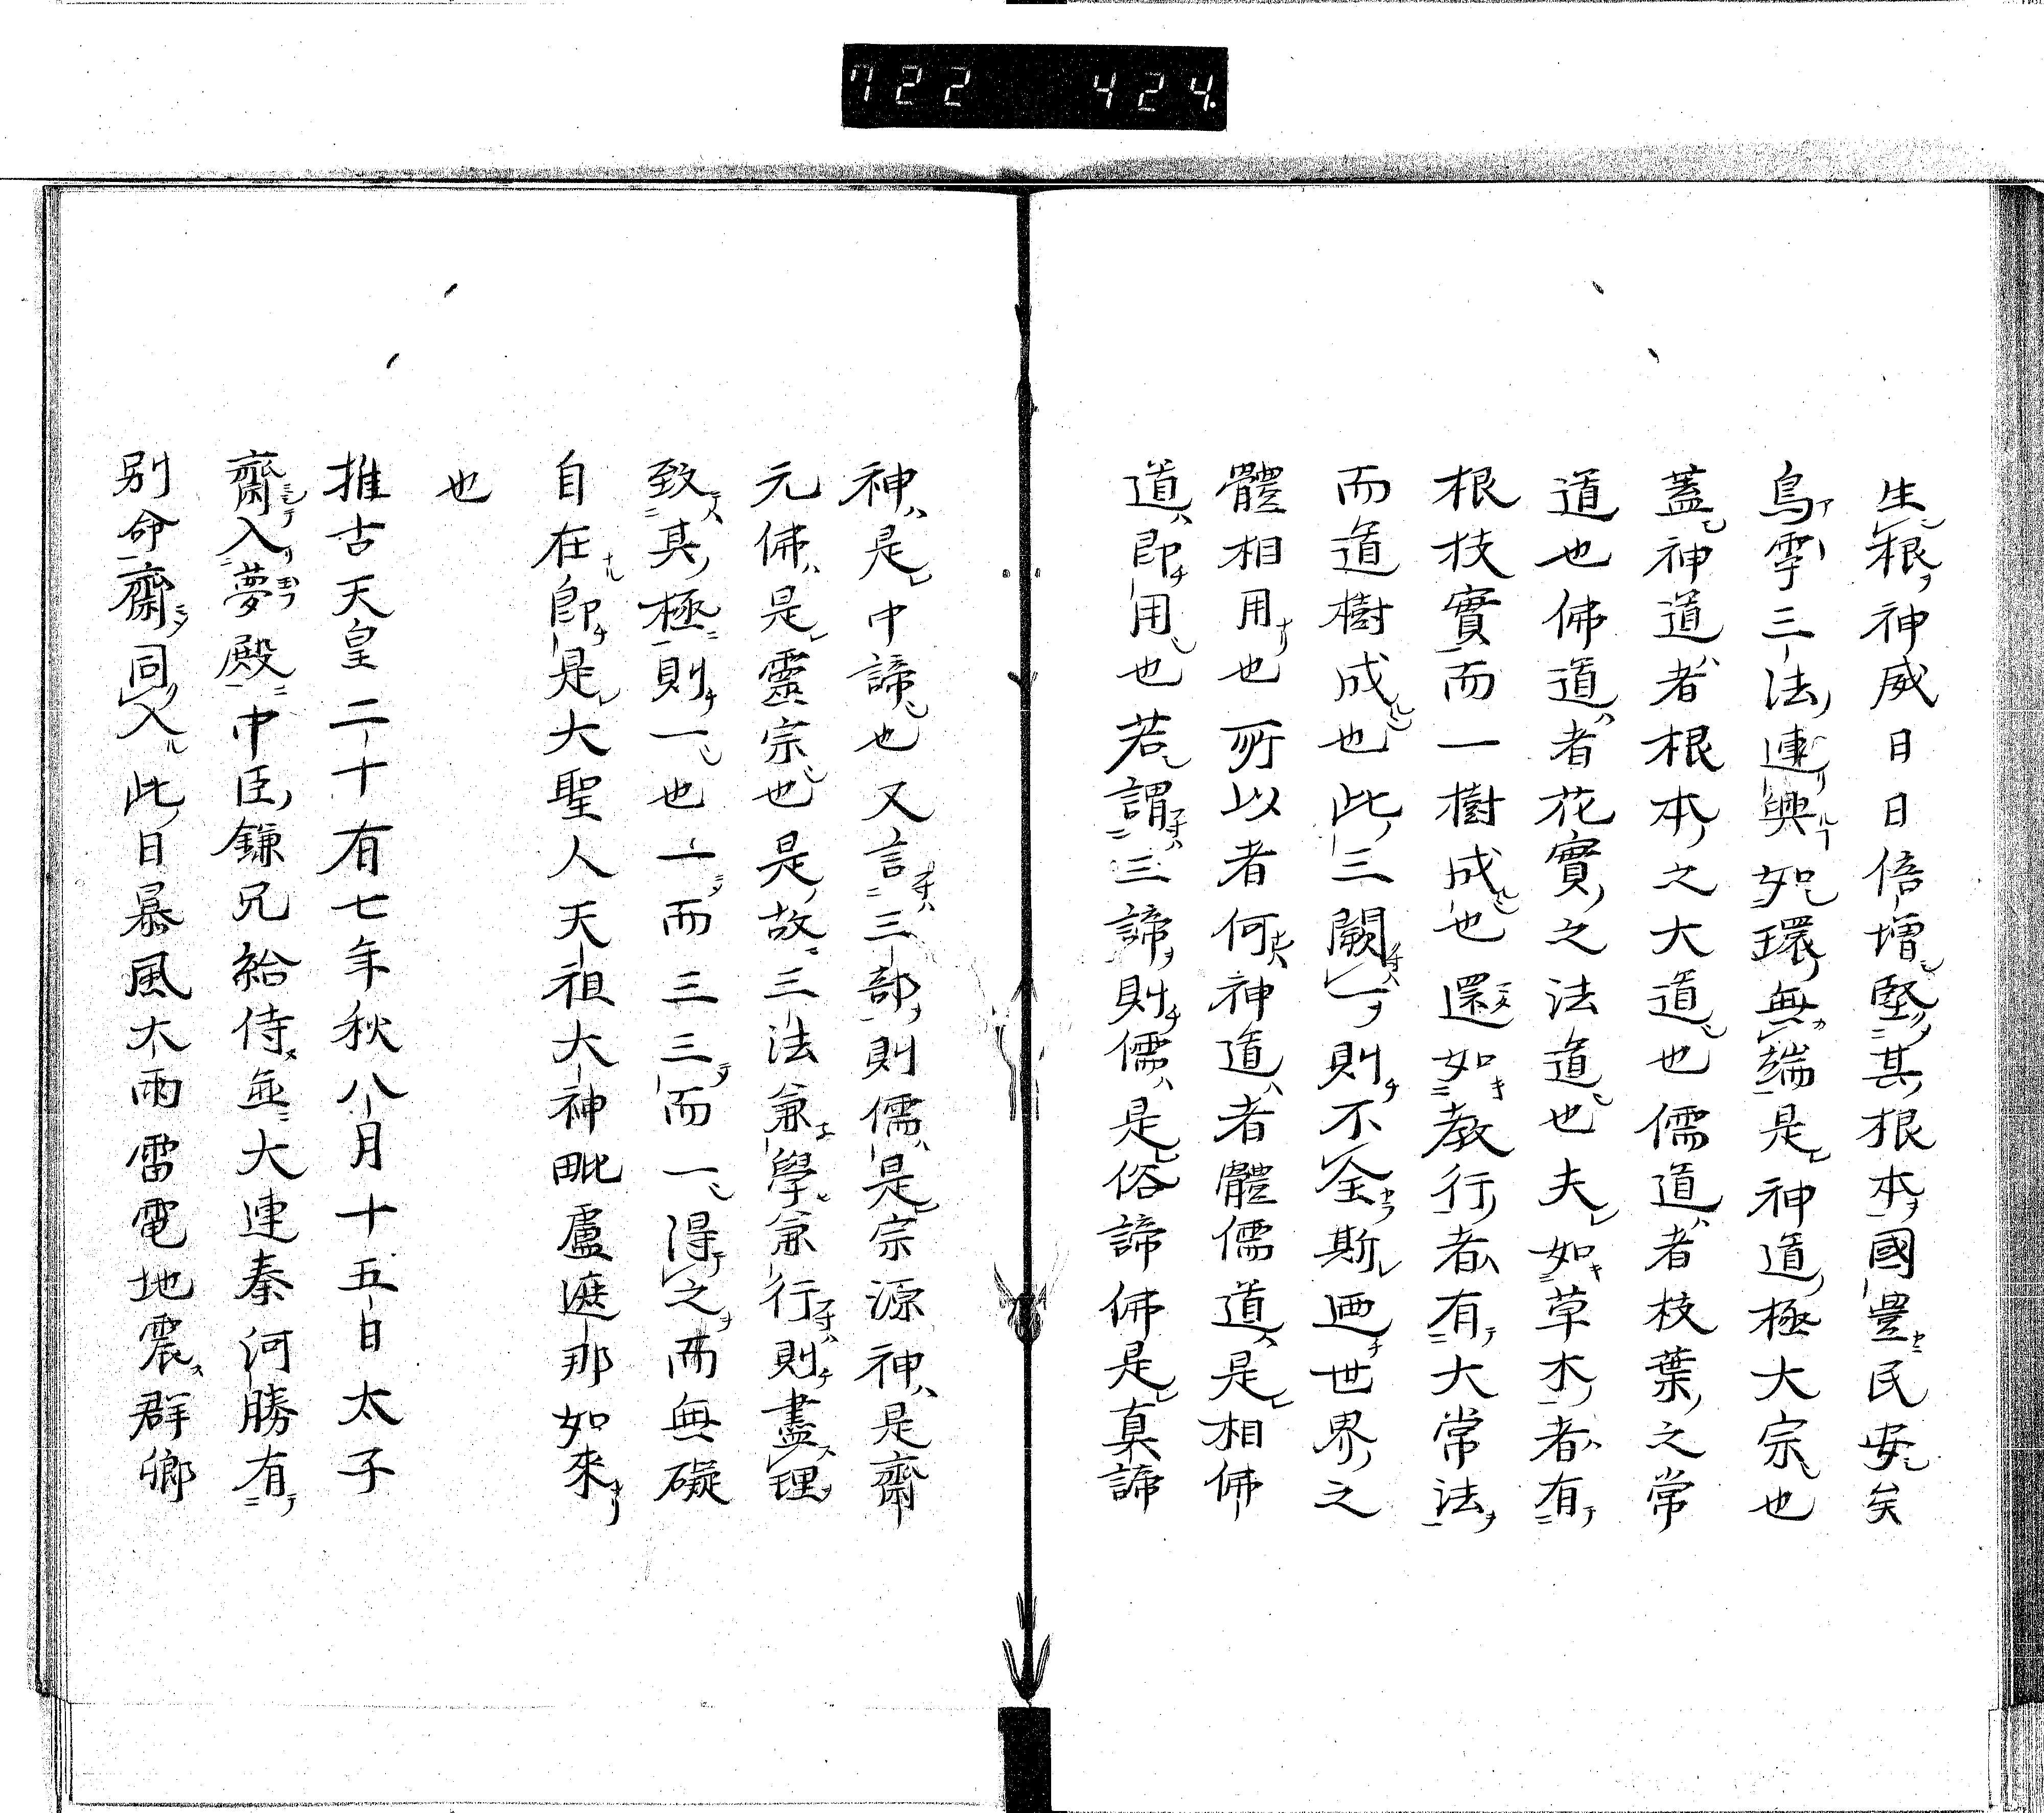 722 424
生根神威日日倍增堅其根本國豊民安矣
烏雫三法連興如環無端是神道極大宗也
蓋神道者根本之大道也儒道者枝葉之常
道也佛道者花實之法道也夫如草木者有
根枝實而一樹成也還如教行者有大常法
而道樹成也此三闕一則不全斯廼世界之
體相用也所以者何神道者體儒道是相佛
道即用也若謂三諦則儒是俗諦佛是真諦
神是中諦也又言三部則儒是宗源神是齋
元佛是靈宗也是故三法兼學兼行則盡理
致其極則一也一而三三而一得之而無礙
自在即是大聖人天祖大神毗盧遮那如來
也
推古天皇二十有七年秋八月十五日太子
齋入夢殿中臣鎌兄給侍並大連秦河勝有
別命齋同入此日暴風大雨雷電地震群卿